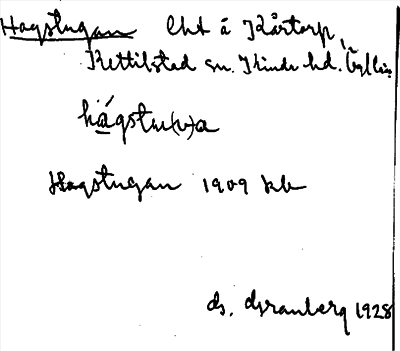 Hagstugan lht å Kårtorp,
Kettilstad sn. Kinda hd. Ögl. län
hágstu(v)a
Hagstugan 1909 kb
ds. Granberg 1928